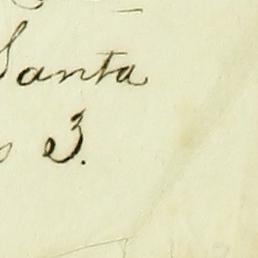 Santa
3.